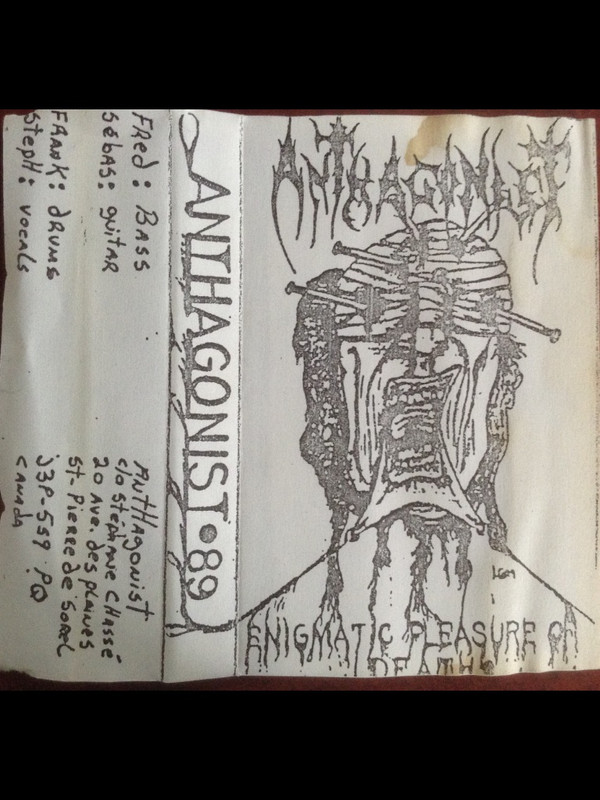 FRed: BASS
sébas: guitAR
FRANK: dRUMS
stepH: vocals
ANtHAgonist
c/o Stéphane CHASSÉ
20 Ave. des plaines
st. Pierre de Sorel
J3P-5S9 PQ
CANAdA
ANTHAGONIST•89
ANTHAGONIST
ENIGMATIC PLEASURE OF
DEATH